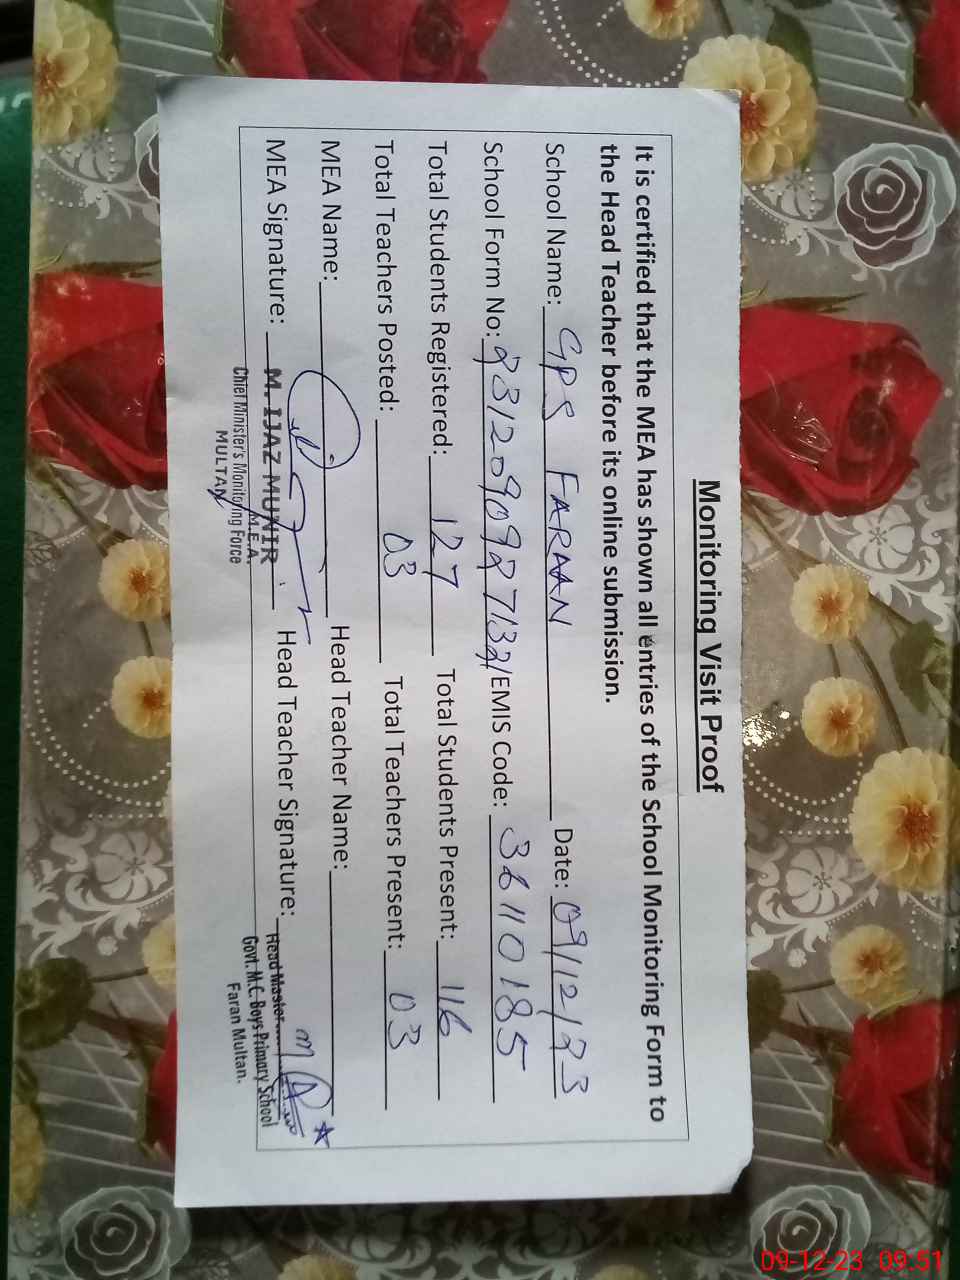 Monitoring Visit Proof
It is certified that the MEA has shown all entries of the School Monitoring Form to
the Head Teacher before its online submission.
School Name: GPS FARAAN Date: 09/12/23
School Form No: EMIS Code: 36110185
Total Students Registered: 127 Total Students Present: 116
Total Teachers Posted: 03 Total Teachers Present: 03
MEA Name: Head Teacher Name:
MEA Signature: Head Teacher Signature:
M. IJAZ MUNIR
M.E.A.
Chief Minister's Monitoring Force
MULTAN
Head Master
Govt. M.C. Boys Primary School
Faran Multan.
09-12-23 09:51